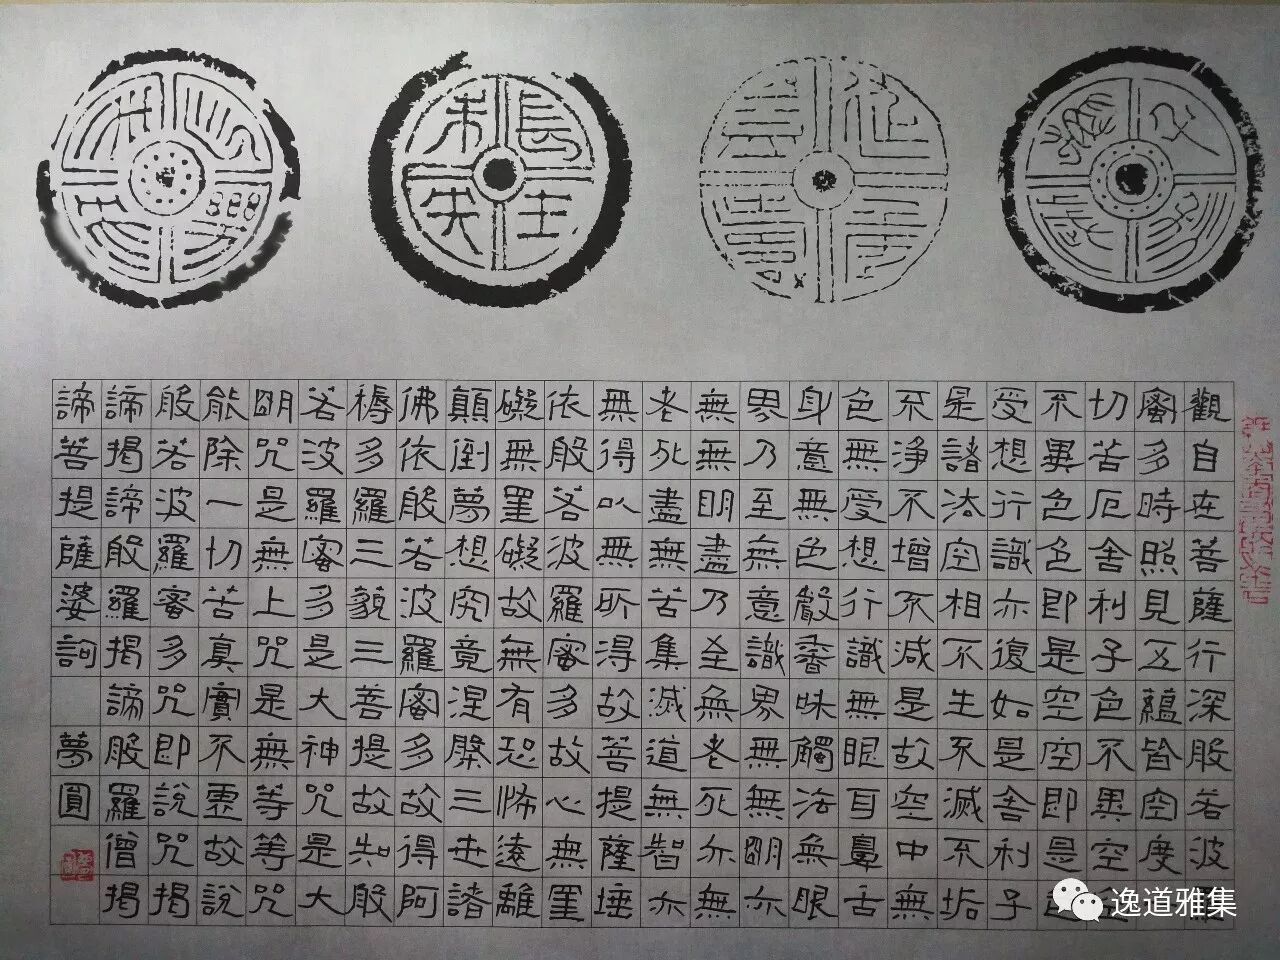 長生未央
觀自在菩薩行深般若波
蜜多時照見五蘊皆空度
切苦厄舍利子色不異空
不異色色即是空空即是色
受想行識亦復如是舍利子
是諸法空相不生不滅不垢
不淨不增不減是故空中無
色無受想行識無眼耳鼻舌
身意無色聲香味觸法無眼
界乃至無意識界無無明亦
無無明盡乃至無老死亦無
老死盡無苦集滅道無智亦
無得以無所得故菩提薩埵
依般若波羅蜜多故心無罣
礙無罣礙故無有恐怖遠離
顛倒夢想究竟涅槃三世諸
佛依般若波羅蜜多故得阿
耨多羅三藐三菩提故知般
若波羅蜜多是大神咒是大
明咒是無上咒是無等等咒
能除一切苦真實不虛故說
般若波羅蜜多咒即說咒揭
諦揭諦般羅揭諦般羅僧揭
諦菩提薩婆訶
夢圓
逸道雅集